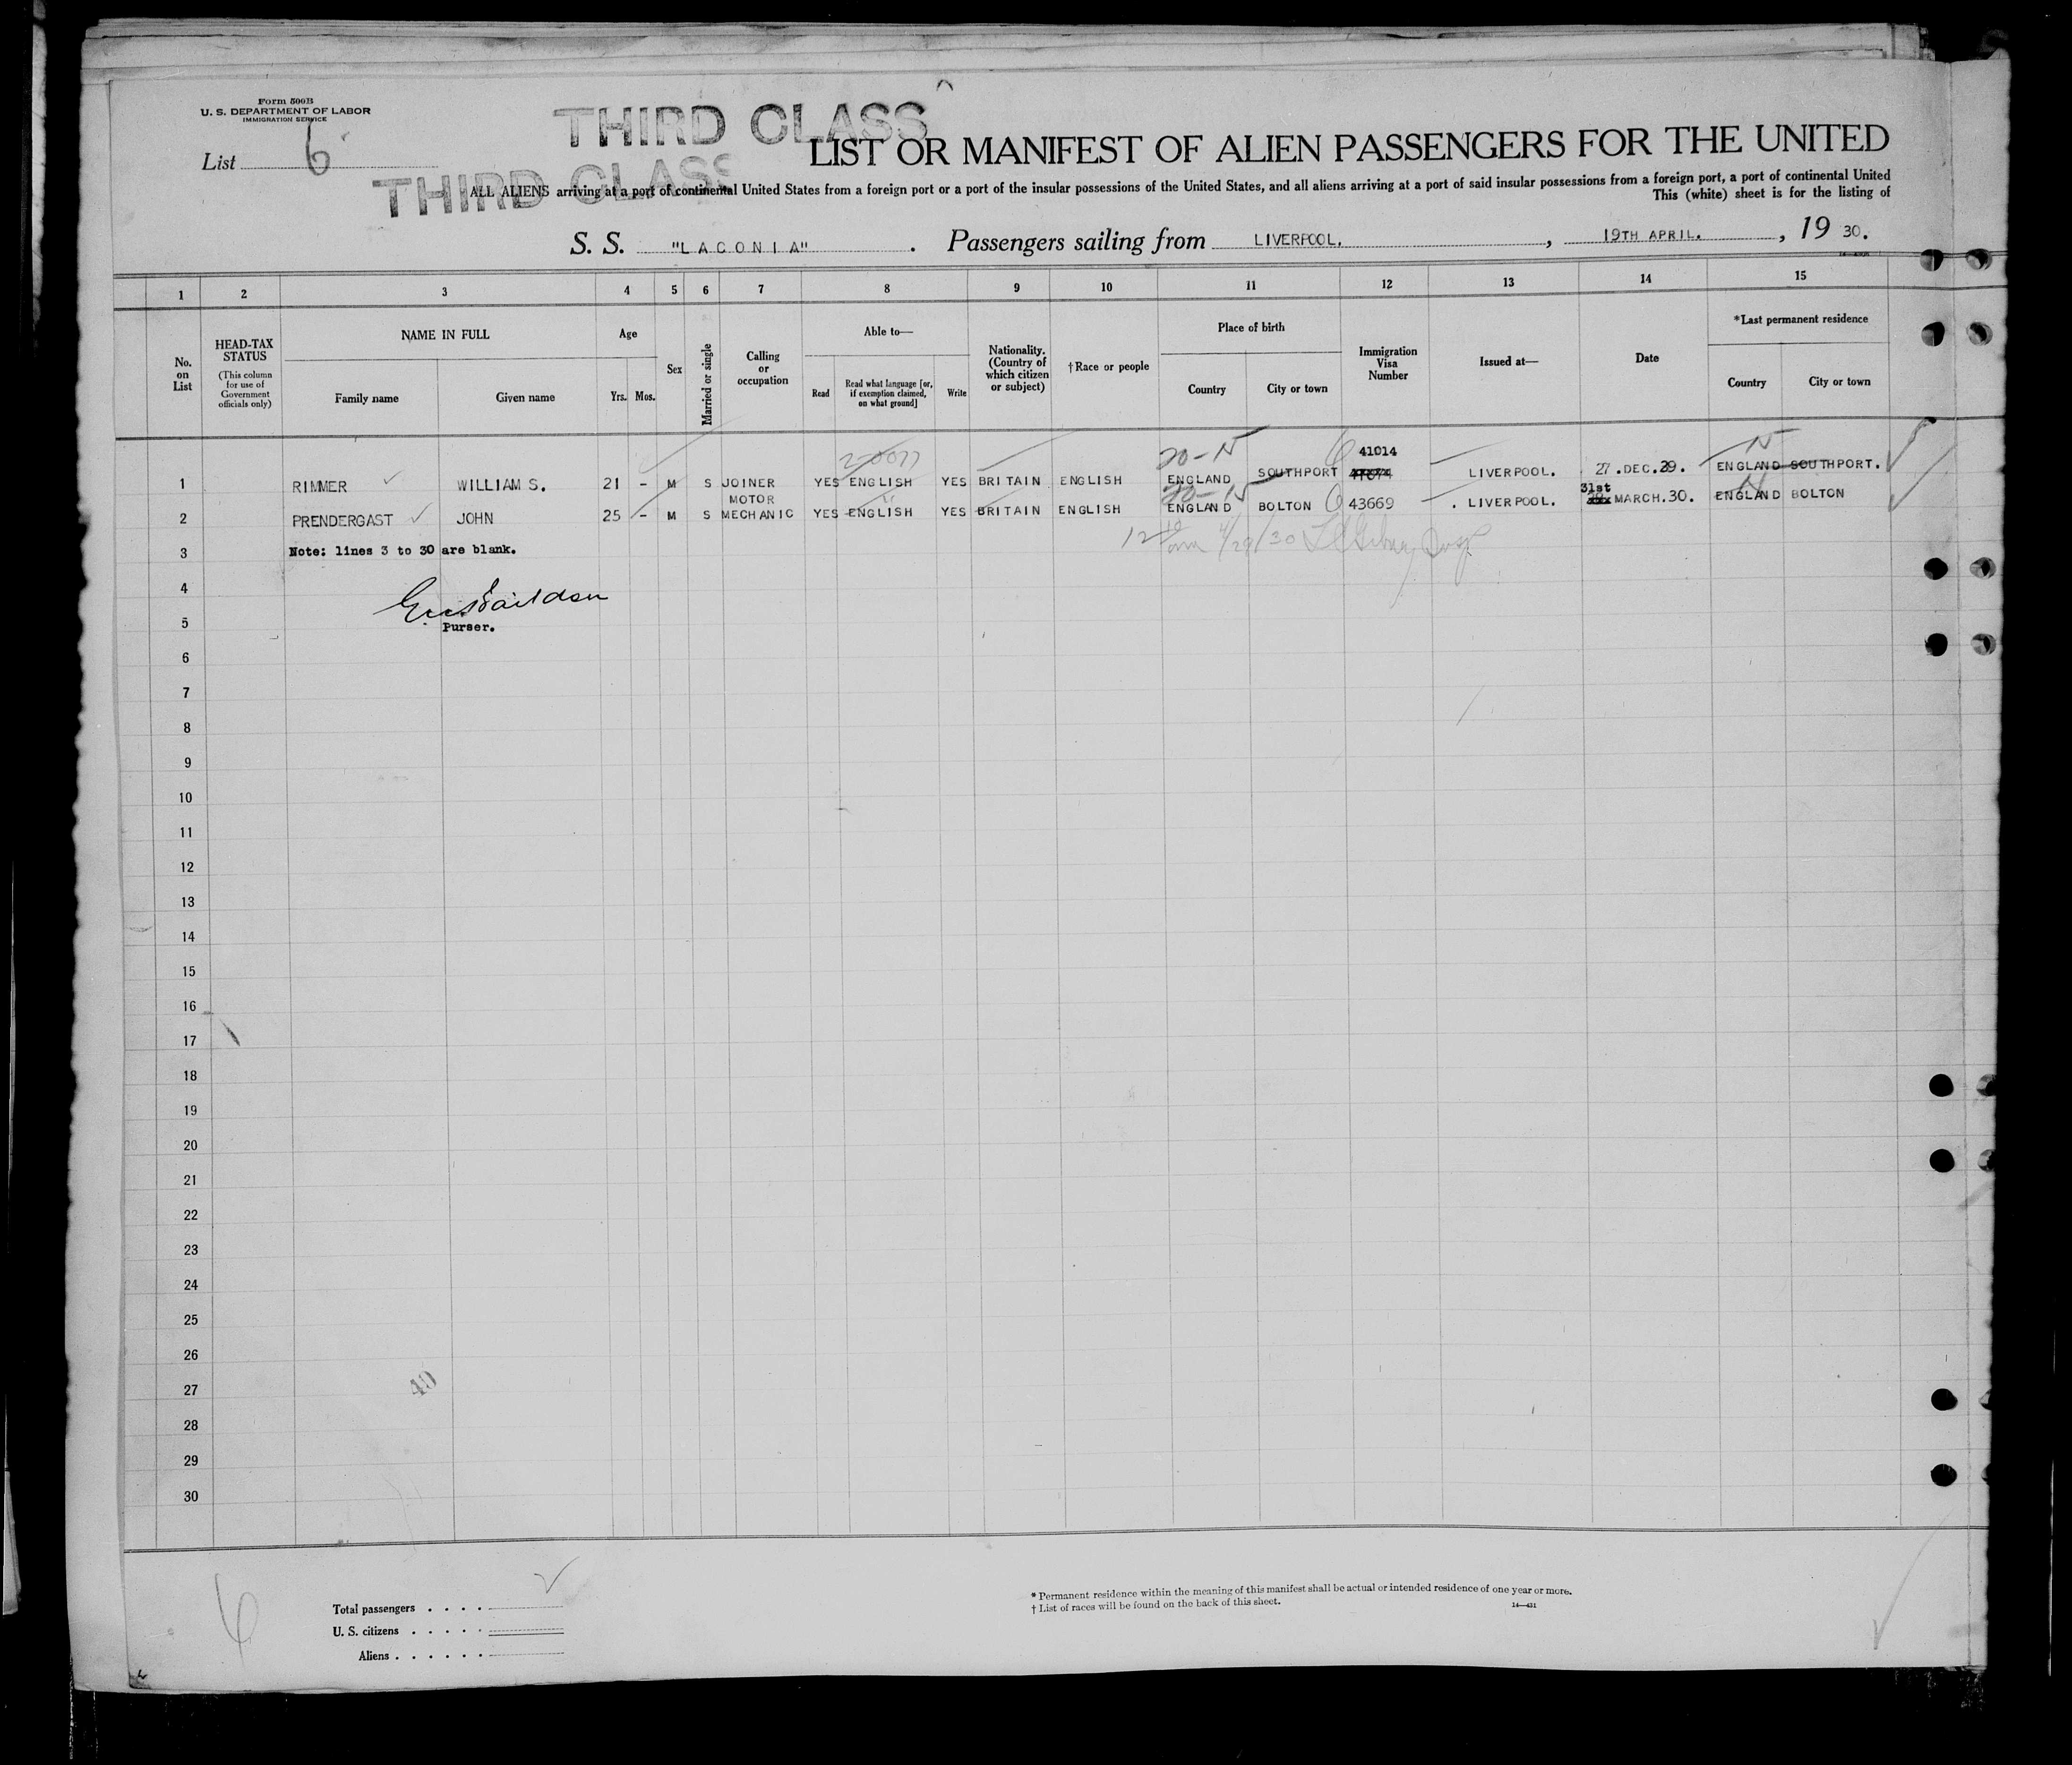 Form 500B
U. S. DEPARTMENT OF LABOR
IMMIGRATION SERVICE
List 6
THIRD CLASS
THIRD CLASS
LIST OR MANIFEST OF ALIEN PASSENGERS FOR THE UNITED
ALL ALIENS arriving at a port of continental United States from a foreign port or a port of the insular possessions of the United States, and all aliens arriving at a port of said insular possessions from a foreign port, a port of continental United
This (white) sheet is for the listing of
S. S. "LACONIA" . Passengers sailing from LIVERPOOL. , 19TH APRIL. , 19 30.
1 2 3 4 5 6 7 8 9 10 11 12 13 14 15
No. on List
HEAD-TAX STATUS
(This column for use of Government officials only)
NAME IN FULL
Family name Given name
Age
Yrs. Mos.
Sex
Married or single
Calling or occupation
Able to—
Read
Read what language [or, if exemption claimed, on what ground]
Write
Nationality. (Country of which citizen or subject)
† Race or people
Place of birth
Country City or town
Immigration Visa Number
Issued at—
Date
*Last permanent residence
Country City or town
20-N 41014 N
1 RIMMER WILLIAM S. 21 - M S JOINER YES ENGLISH YES BRITAIN ENGLISH ENGLAND SOUTHPORT LIVERPOOL. 27.DEC.29. ENGLAND SOUTHPORT.
MOTOR 20-N 31st N
2 PRENDERGAST JOHN 25 - M S MECHANIC YES ENGLISH YES BRITAIN ENGLISH ENGLAND BOLTON 43669 . LIVERPOOL. MARCH.30. ENGLAND BOLTON
3 Note: lines 3 to 30 are blank.
4/29/30
4
5 Purser.
6
7
8
9
10
11
12
13
14
15
16
17
18
19
20
21
22
23
24
25
26
27 40
28
29
30
6
Total passengers . . . .
U. S. citizens . . . . .
Aliens . . . . . .
* Permanent residence within the meaning of this manifest shall be actual or intended residence of one year or more.
† List of races will be found on the back of this sheet. 14—431